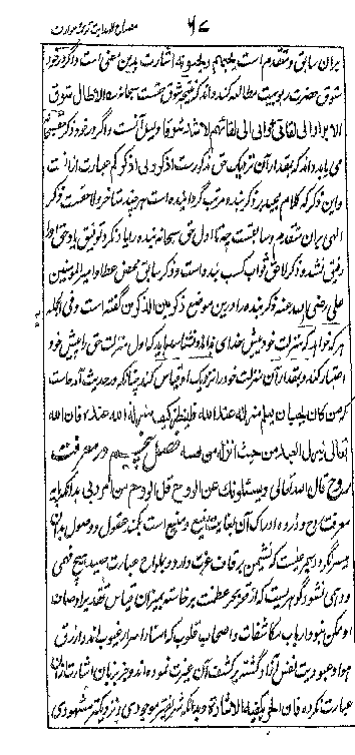 ۶۷ مصباح الهدایت ترجمهٔ عوارف
بران سابق و متقدم است یحبهم و یحبونه اشارت بدین معنی است و اگر در خود
شوق حضرت ربوبیت مطالعه کند داند که نتیجه شوق حق است سبحانه الا طال شوق
الابرار الی لقائی و انی الی لقائهم لاشد شوقا دلیل آنست و اگر در خود ذکر حق سبحانه
می یابد داند که بمقدار آن نزدیک حق مذکورست اذکرونی اذکرکم عبارت ازانست
و این ذکر که کلام مجید بر ذکر بنده مرتب گردانیده است هر چند متاخر و لاحقست ذکر
الهی بران متقدم و سابقست چه تا اول حق سبحانه بنده را یاد نکرد و توفیق یاد حق او را
رفیق نشد و ذکر لاحق ثواب کسب بنده است و ذکر سابق محض عطا و امیرالمومنین
علی رضی الله عنه ذکر بنده را درین موضع ذکر بین الذکرین گفته است و فی الجمله
هر که خواهد که منزلت خود پیش خدای بشناسد باید که اول منزلت حق را پیش خود
اعتبار کند و بمقدار آن منزلت خود را نزدیک او قیاس کند چنانکه در حدیث آمده است
من کان یحب ان یعلم منزلته عند الله فلینظر کیف منزلة الله عنده فان الله
تعالی ینزل العبد من حیث انزله من نفسه فصل پنجم در معرفت
روح قال الله تعالی ویسئلونک عن الروح قل الروح من امر ربی بدانکه پایه
معرفت روح و ذروه ادراک آن بغایت رفیع و منیع است بکمند عقول وصول بدان
میسر نگردد سیمرغیست که نشیمن بر قاف عزت دارد و بدام عبارت صید هیچ فهمی
و وهمی نشود گوهریست که از قعر بحر عظمت برخاسته بمیزان قیاس تقدیر اوصاف
او ممکن نبود ارباب مکاشفات و اصحاب قلوب که امنای اسرار غیوب اند و از رق
هوا و عبودیت نفس آزاد گشته بر کشف آن غیرت نموده اند و جز بزبان اشارت ازان
عبارت نکرده فان الحر یکفیه الاشارة و بدانکه شریفتر موجودی و نزدیکتر مشهودی